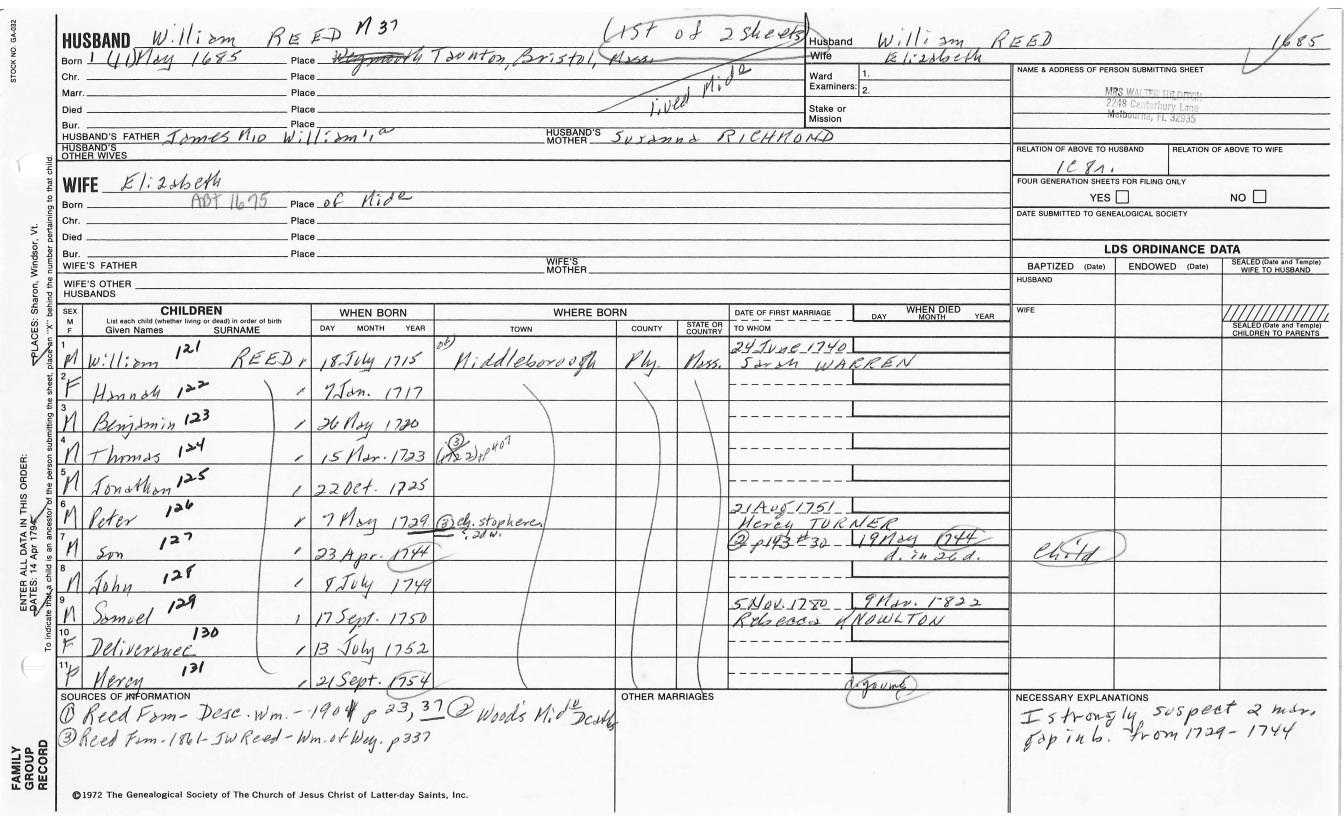 STOCK NO. GA-032
HUSBAND William REED M 37
(1st of 2 sheets)
Husband William REED 1685
Wife Elizabeth
Born 1 (11) May 1685 Place Weymouth Taunton, Bristol, Mass.
Chr. Place
Marr. Place
Died Place
Bur. Place
lived Midᵉ
Ward Examiners: 1.
2.
Stake or Mission
NAME & ADDRESS OF PERSON SUBMITTING SHEET
MRS WALTER
2248 Canterbury Lane
Melbourne, FL 32935
HUSBAND'S FATHER James M10 William'1a HUSBAND'S MOTHER Susanna RICHMOND
HUSBAND'S OTHER WIVES
RELATION OF ABOVE TO HUSBAND RELATION OF ABOVE TO WIFE
FOUR GENERATION SHEETS FOR FILING ONLY
YES NO
DATE SUBMITTED TO GENEALOGICAL SOCIETY
WIFE Elizabeth
Born ABT 1675 Place of Midᵉ
Chr. Place
Died Place
Bur. Place
WIFE'S FATHER WIFE'S MOTHER
WIFE'S OTHER HUSBANDS
LDS ORDINANCE DATA
BAPTIZED (Date) ENDOWED (Date) SEALED (Date and Temple) WIFE TO HUSBAND
HUSBAND
WIFE
SEALED (Date and Temple) CHILDREN TO PARENTS
SEX M F
CHILDREN
List each child (whether living or dead) in order of birth
Given Names SURNAME
WHEN BORN
DAY MONTH YEAR
WHERE BORN
TOWN COUNTY STATE OR COUNTRY
DATE OF FIRST MARRIAGE
TO WHOM
WHEN DIED
DAY MONTH YEAR
1 M William 121 REED 18 July 1715 of Middleborough Ply. Mass. 24 June 1740
Sarah WARREN
2 F Hannah 122 7 Jan. 1717
3 M Benjamin 123 26 May 1720
4 M Thomas 124 15 Mar. 1723 ③ (1722) p 407
5 M Jonathan 125 22 Oct. 1725
6 M Peter 126 7 May 1729 ③ ch. stop here, ? 2d w. 21 Aug 1751
Mercy TURNER
7 M son 127 23 Apr. 1744 ② p 143 # 30 19 May 1744
d. in 26 d. child
8 M John 128 8 July 1749
9 M Samuel 129 17 Sept. 1750 5 Nov. 1780 9 Mar. 1822
Rebecca KNOWLTON
10 F Deliverance 130 13 July 1752
11 F Mercy 131 21 Sept. 1754 d. young
SOURCES OF INFORMATION
① Reed Fam- Desc. Wm. - 1901 p 23, 37 ② Wood's Midᵉ Deaths
③ Reed Fam-1861-JW Reed-Wm. of Wey. p 337
OTHER MARRIAGES
NECESSARY EXPLANATIONS
I strongly suspect 2 mar.
gap in b. from 1729-1744
©1972 The Genealogical Society of The Church of Jesus Christ of Latter-day Saints, Inc.
FAMILY
GROUP
RECORD
ENTER ALL DATA IN THIS ORDER:
DATES: 14 Apr 1794
PLACES: Sharon, Windsor, Vt.
To indicate that a child is an ancestor of the person submitting the sheet, place an "X" behind the number pertaining to that child.